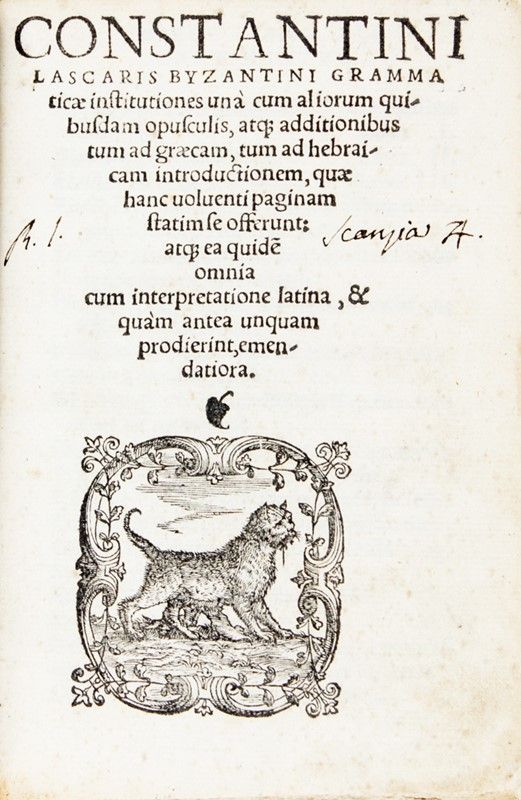 CONSTANTINI
LASCARIS BYZANTINI GRAMMA
ticæ institutiones unà cum aliorum qui-
busdam opusculis, atq; additionibus
tum ad græcam, tum ad hebrai-
cam introductionem, quæ
hanc uoluenti paginam
statim se offerunt:
atq; ea quidē
omnia
cum interpretatione latina, &
quàm antea unquam
prodierint, emen-
datiora.